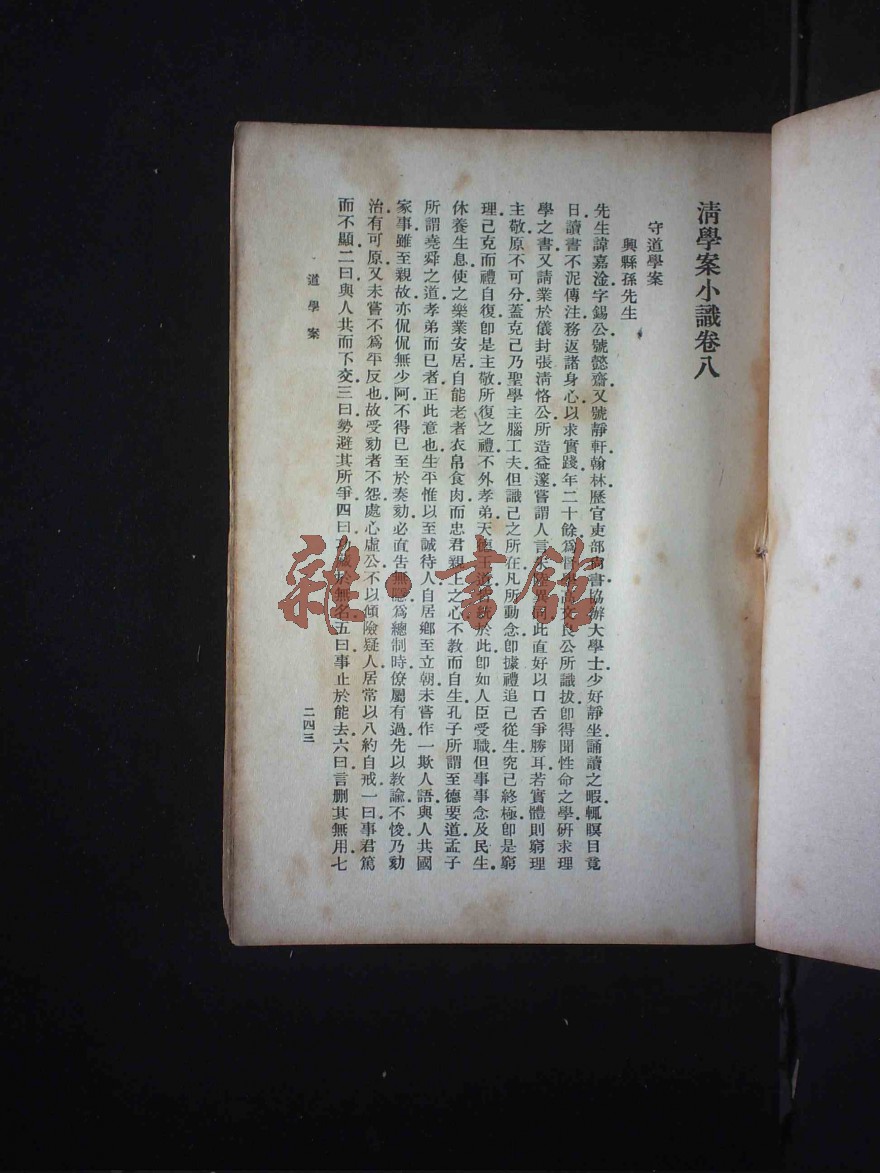 淸學案小識卷八
守道學案
興縣孫先生
先生諱嘉淦字錫公號懿齋又號靜軒翰林歷官吏部尙書協辦大學士少好靜坐誦讀之暇輒瞑目竟
日讀書不泥傳注務返諸身心以求實踐年二十餘爲高文良公所識拔卽得聞性命之學硏求理
學之書又請業於儀封張淸恪公所造益邃嘗謂人言異同此直好以口舌爭勝耳若實體則窮理
主敬原不可分蓋克己乃聖學主腦工夫但識己之所在凡所動念卽據禮追己從生究已終極卽是窮
理己克而禮自復卽是主敬所復之禮不外孝弟天德王道於此卽如人臣受職但事事念及民生
休養生息使之樂業安居自能老者衣帛食肉而忠君親上之心不教而自生孔子所謂至德要道孟子
所謂堯舜之道孝弟而已者正此意也生平惟以至誠待人自居鄉至立朝未嘗作一欺人語與人共國
家事雖至親故亦侃侃無少阿不得已至於奏劾必直吿無隱爲總制時僚屬有過先以教諭不悛乃劾
治有可原又未嘗不爲平反也故受劾者不怨處心虛公不以傾險疑人居常以八約自戒一曰事君篤
而不顯二曰與人共而不交三曰勢避其所爭四曰功藏於無名五曰事止於能去六曰言刪其無用七
道學案
二四三
雜·書館